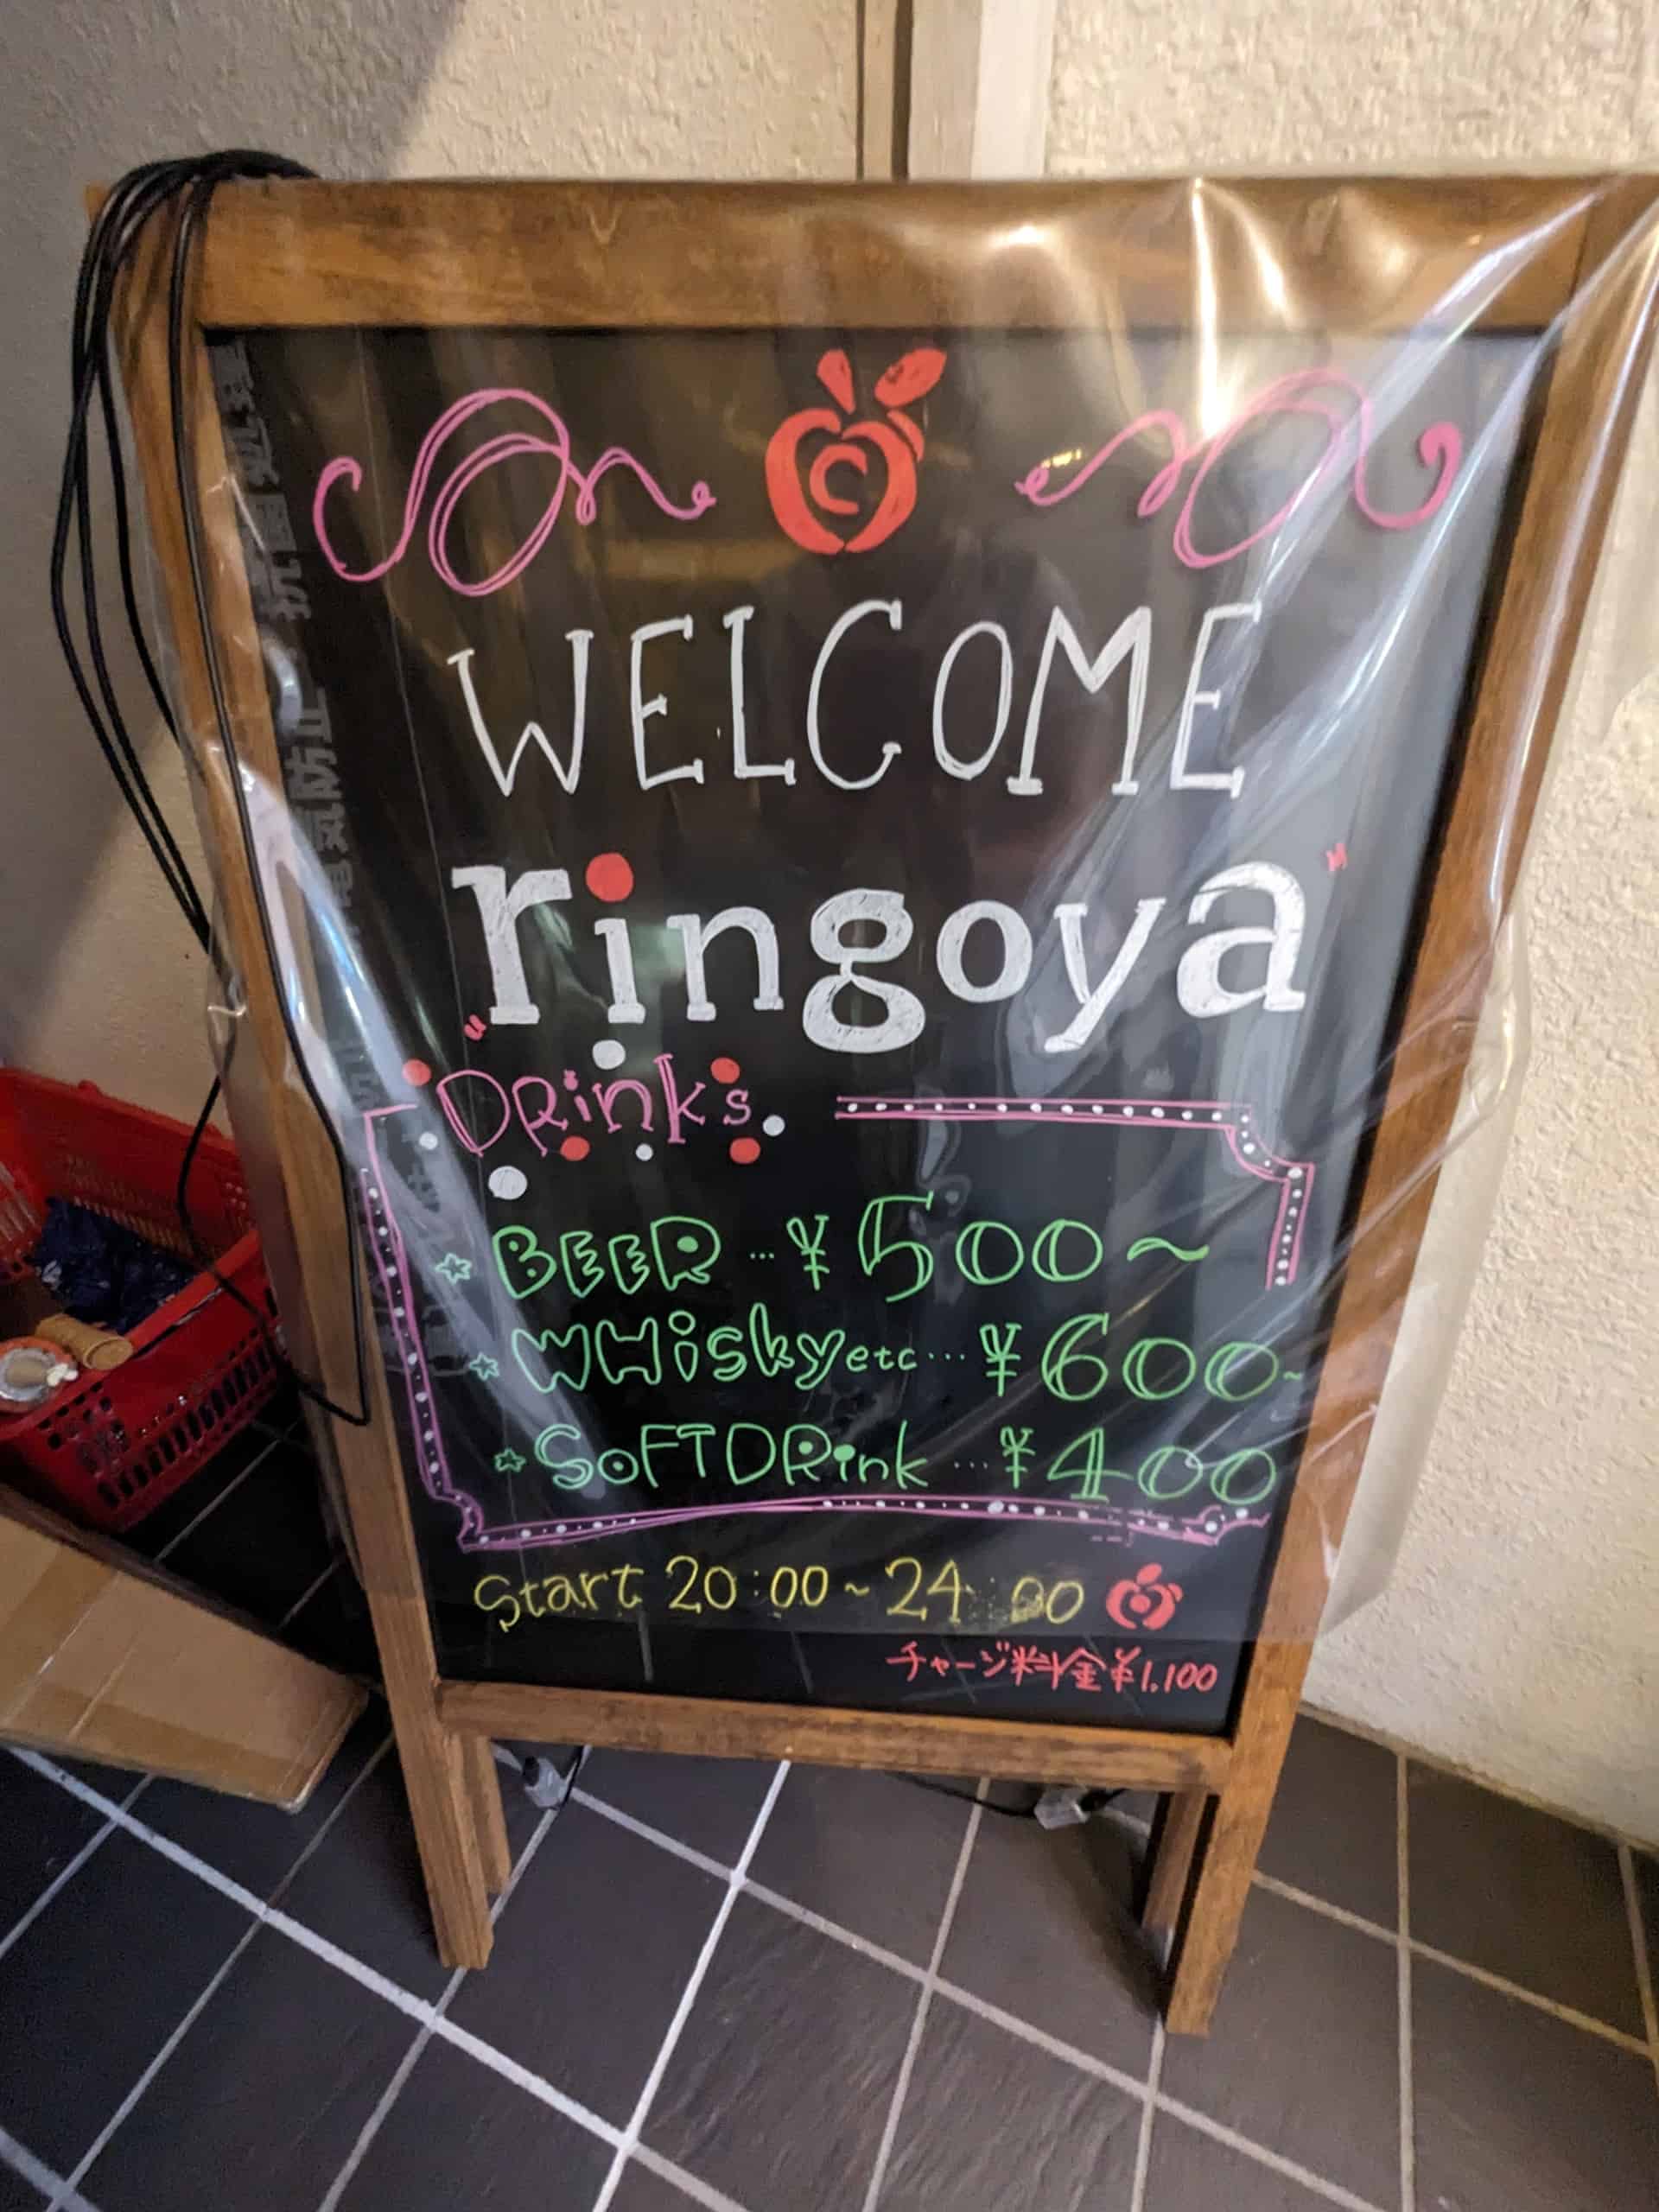 C
WELCOME
"ringoya"
DRinks
☆ BEER … ¥500~
☆ WHisky etc … ¥600~
☆ SoFTDRink … ¥400
Start 20:00~24:00
チャージ料金¥1,100